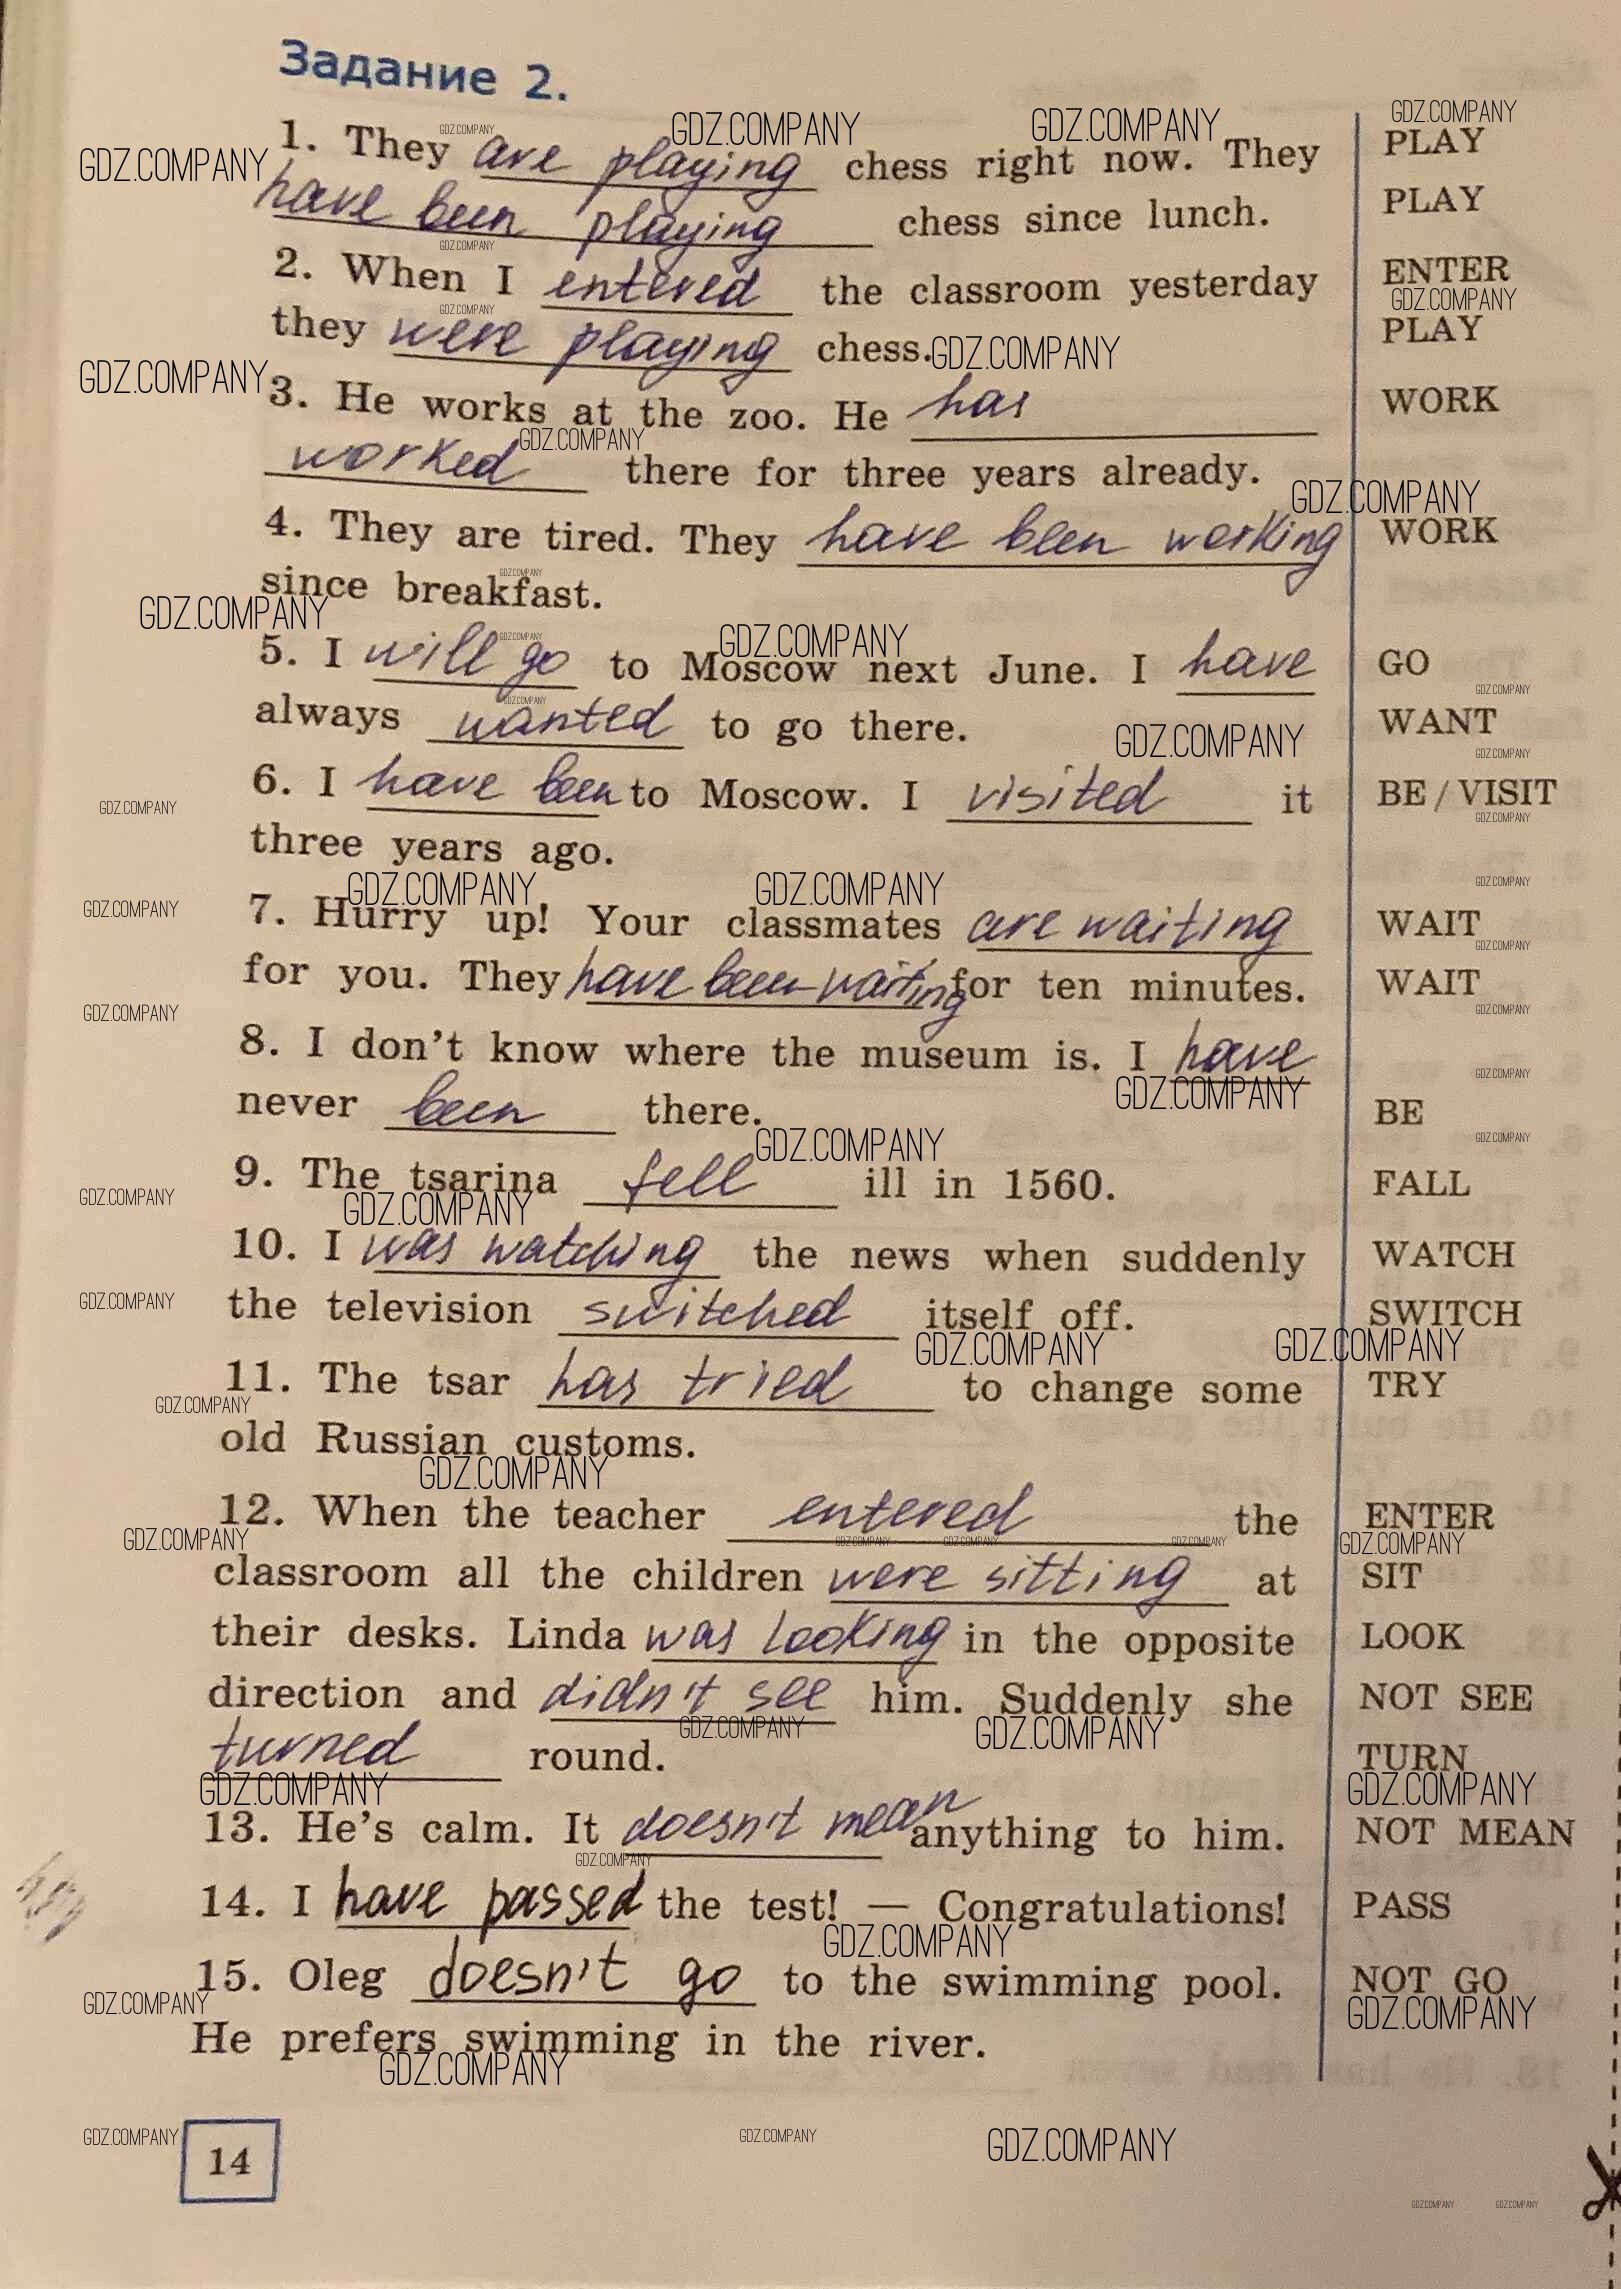 Задание 2.
1. They are playing chess right now. They PLAY
have been playing chess since lunch. PLAY
2. When I entered the classroom yesterday ENTER
they were playing chess. PLAY
3. He works at the zoo. He has WORK
worked there for three years already.
4. They are tired. They have been working WORK
since breakfast.
5. I will go to Moscow next June. I have GO
always wanted to go there. WANT
6. I have been to Moscow. I visited it BE / VISIT
three years ago.
7. Hurry up! Your classmates are waiting WAIT
for you. They have been waiting for ten minutes. WAIT
8. I don't know where the museum is. I have
never been there. BE
9. The tsarina fell ill in 1560. FALL
10. I was watching the news when suddenly WATCH
the television switched itself off. SWITCH
11. The tsar has tried to change some TRY
old Russian customs.
12. When the teacher entered the ENTER
classroom all the children were sitting at SIT
their desks. Linda was looking in the opposite LOOK
direction and didn't see him. Suddenly she NOT SEE
turned round. TURN
13. He's calm. It doesn't mean anything to him. NOT MEAN
14. I have passed the test! — Congratulations! PASS
15. Oleg doesn't go to the swimming pool. NOT GO
He prefers swimming in the river.
14
GDZ.COMPANY